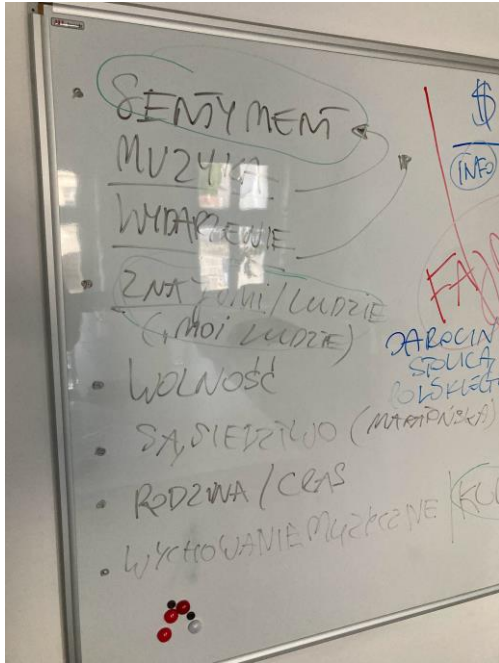 • SENTYMENT
MUZYKA
WYDARZENIE
• ZNAJOMI/LUDZIE
("MOI LUDZIE)
• WOLNOŚĆ
• SĄSIEDZTWO (MARIAŃSKA)
• RODZINA/CZAS
• WYCHOWANIE MUZYCZNE /
$
INFO
JAROCIN
STOLICA